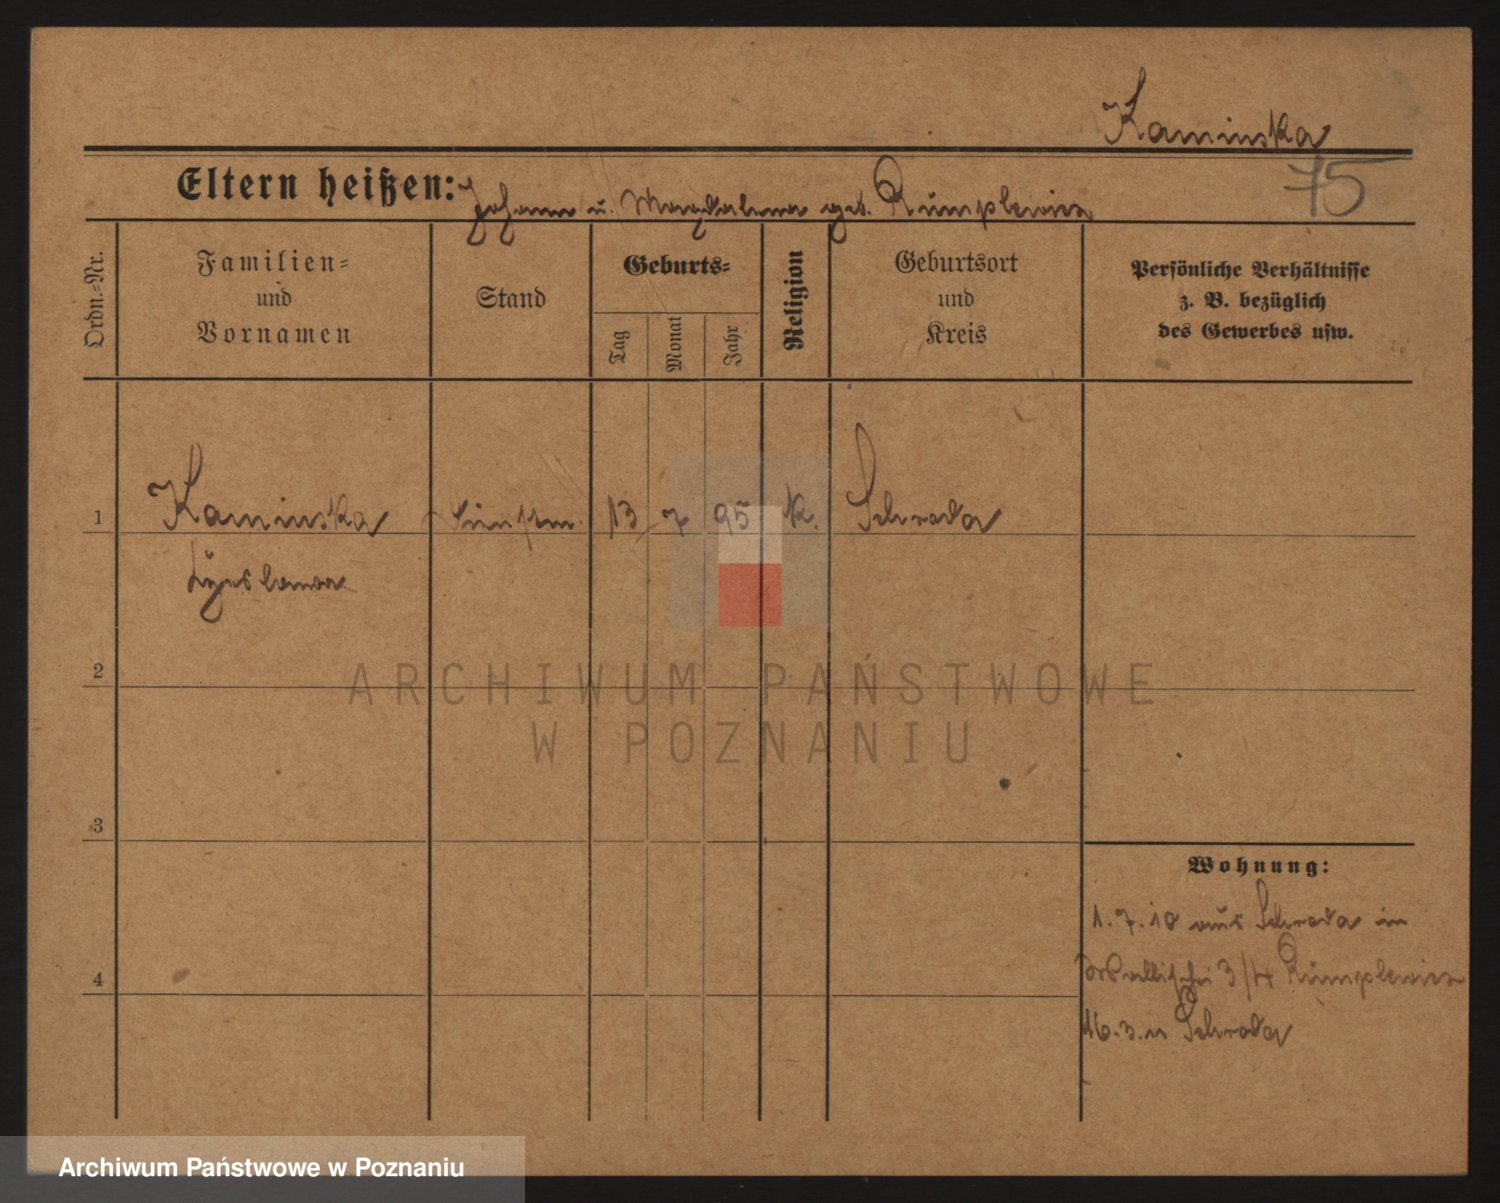 Kaminska
75
Eltern heißen: Johann u. Magdalena geb. Rumplewicz
Ordn.-Nr.
Familien-
und
Vornamen
Stand
Geburts-
Tag
Monat
Jahr
Religion
Geburtsort
und
Kreis
Persönliche Verhältnisse
z. B. bezüglich
des Gewerbes usw.
1
Kaminska
13 7 95 k. Schroda
2
3
4
Wohnung:
1.7.10 aus Schroda in
Wallischei 3/4 Rumplewicz
16.3.11 Schroda
ARCHIWUM PAŃSTWOWE
W POZNANIU
Archiwum Państwowe w Poznaniu